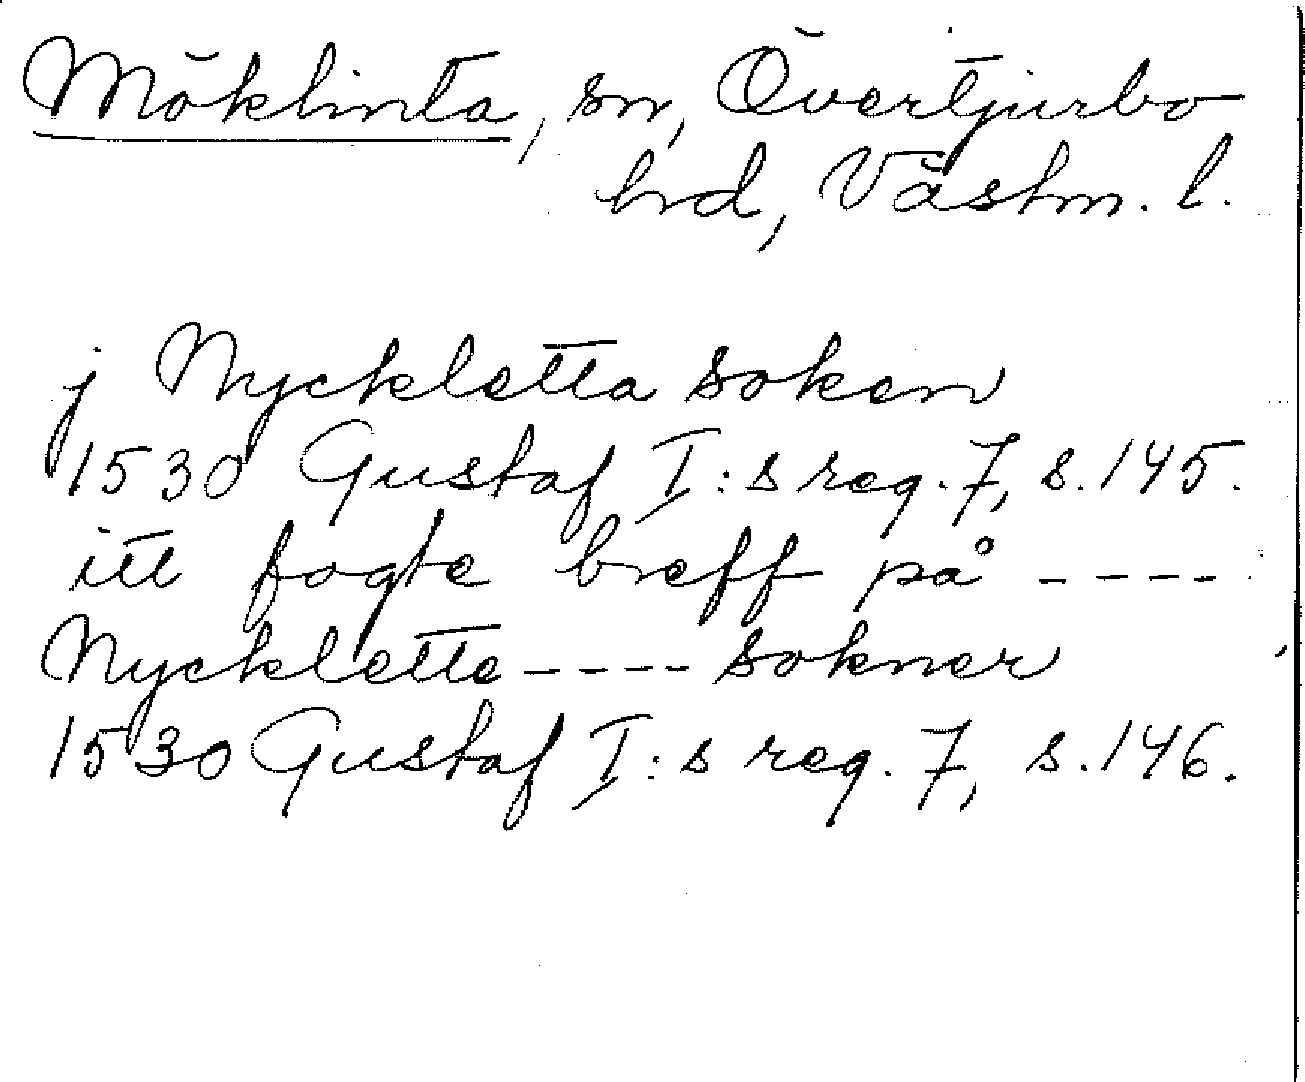 Möklinta, sn, Övertjurbo
hrd, Västm. l.
j Nyckletta soken
1530 Gustaf I:s reg. 7, s. 145.
itt fogte breff på ----
Nycklette ---- sokner
1530 Gustaf I:s reg. 7, s. 146.